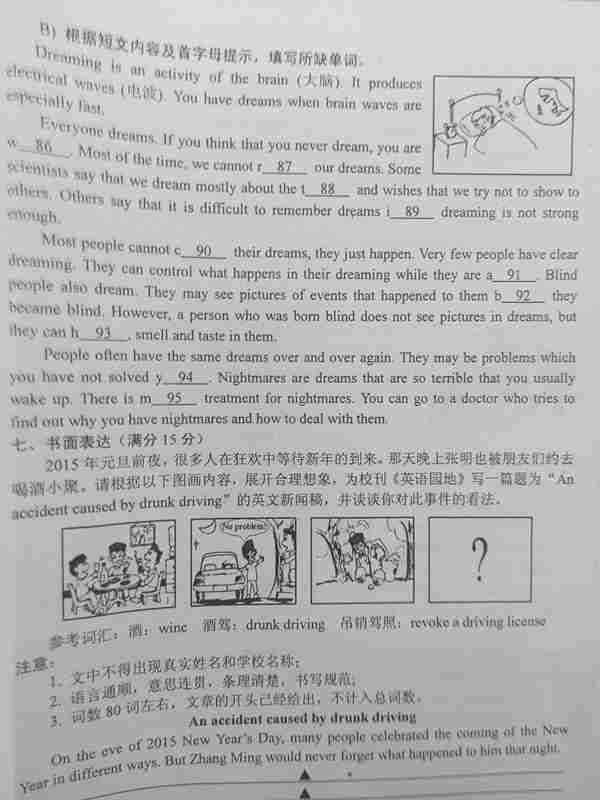 B) 根据短文内容及首字母提示，填写所缺单词。
Dreaming is an activity of the brain (大脑). It produces
electrical waves (电波). You have dreams when brain waves are
especially fast.
Everyone dreams. If you think that you never dream, you are
w__86__. Most of the time, we cannot r__87__ our dreams. Some
scientists say that we dream mostly about the t__88__ and wishes that we try not to show to
others. Others say that it is difficult to remember dreams i__89__ dreaming is not strong
enough.
Most people cannot c__90__ their dreams, they just happen. Very few people have clear
dreaming. They can control what happens in their dreaming while they are a__91__. Blind
people also dream. They may see pictures of events that happened to them b__92__ they
became blind. However, a person who was born blind does not see pictures in dreams, but
they can h__93__, smell and taste in them.
People often have the same dreams over and over again. They may be problems which
you have not solved y__94__. Nightmares are dreams that are so terrible that you usually
wake up. There is m__95__ treatment for nightmares. You can go to a doctor who tries to
find out why you have nightmares and how to deal with them.
七、书面表达（满分 15 分）
2015 年元旦前夜，很多人在狂欢中等待新年的到来。那天晚上张明也被朋友们约去
喝酒小聚。请根据以下图画内容，展开合理想象，为校刊《英语园地》写一篇题为“An
accident caused by drunk driving”的英文新闻稿，并谈谈你对此事件的看法。
No problem!
?
参考词汇：酒：wine 酒驾：drunk driving 吊销驾照：revoke a driving license
注意：
1．文中不得出现真实姓名和学校名称；
2．语言通顺，意思连贯，条理清楚，书写规范；
3．词数 80 词左右，文章的开头已经给出，不计入总词数。
An accident caused by drunk driving
On the eve of 2015 New Year's Day, many people celebrated the coming of the New
Year in different ways. But Zhang Ming would never forget what happened to him that night.